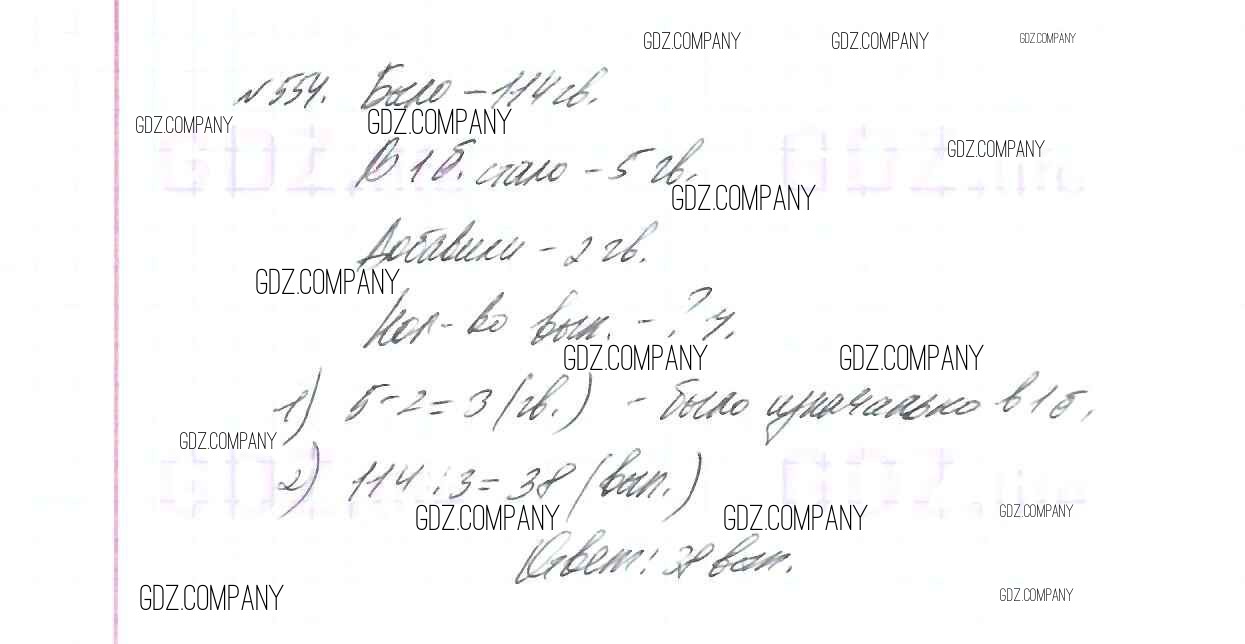 GDZ.COMPANY GDZ.COMPANY GDZ.COMPANY
№554. Было – 114 гв.
GDZ.COMPANY GDZ.COMPANY
GDZ.COMPANY
В 1 б. стало – 5 гв.
GDZ.COMPANY
Добавили – 2 гв.
GDZ.COMPANY
Кол-во вып. – ? ч.
GDZ.COMPANY GDZ.COMPANY
1) 5-2=3 (гв.) – было изначально в 1 б.
GDZ.COMPANY
2) 114:3=38 (вып.)
GDZ.COMPANY GDZ.COMPANY GDZ.COMPANY
Ответ: 38 вып.
GDZ.COMPANY GDZ.COMPANY